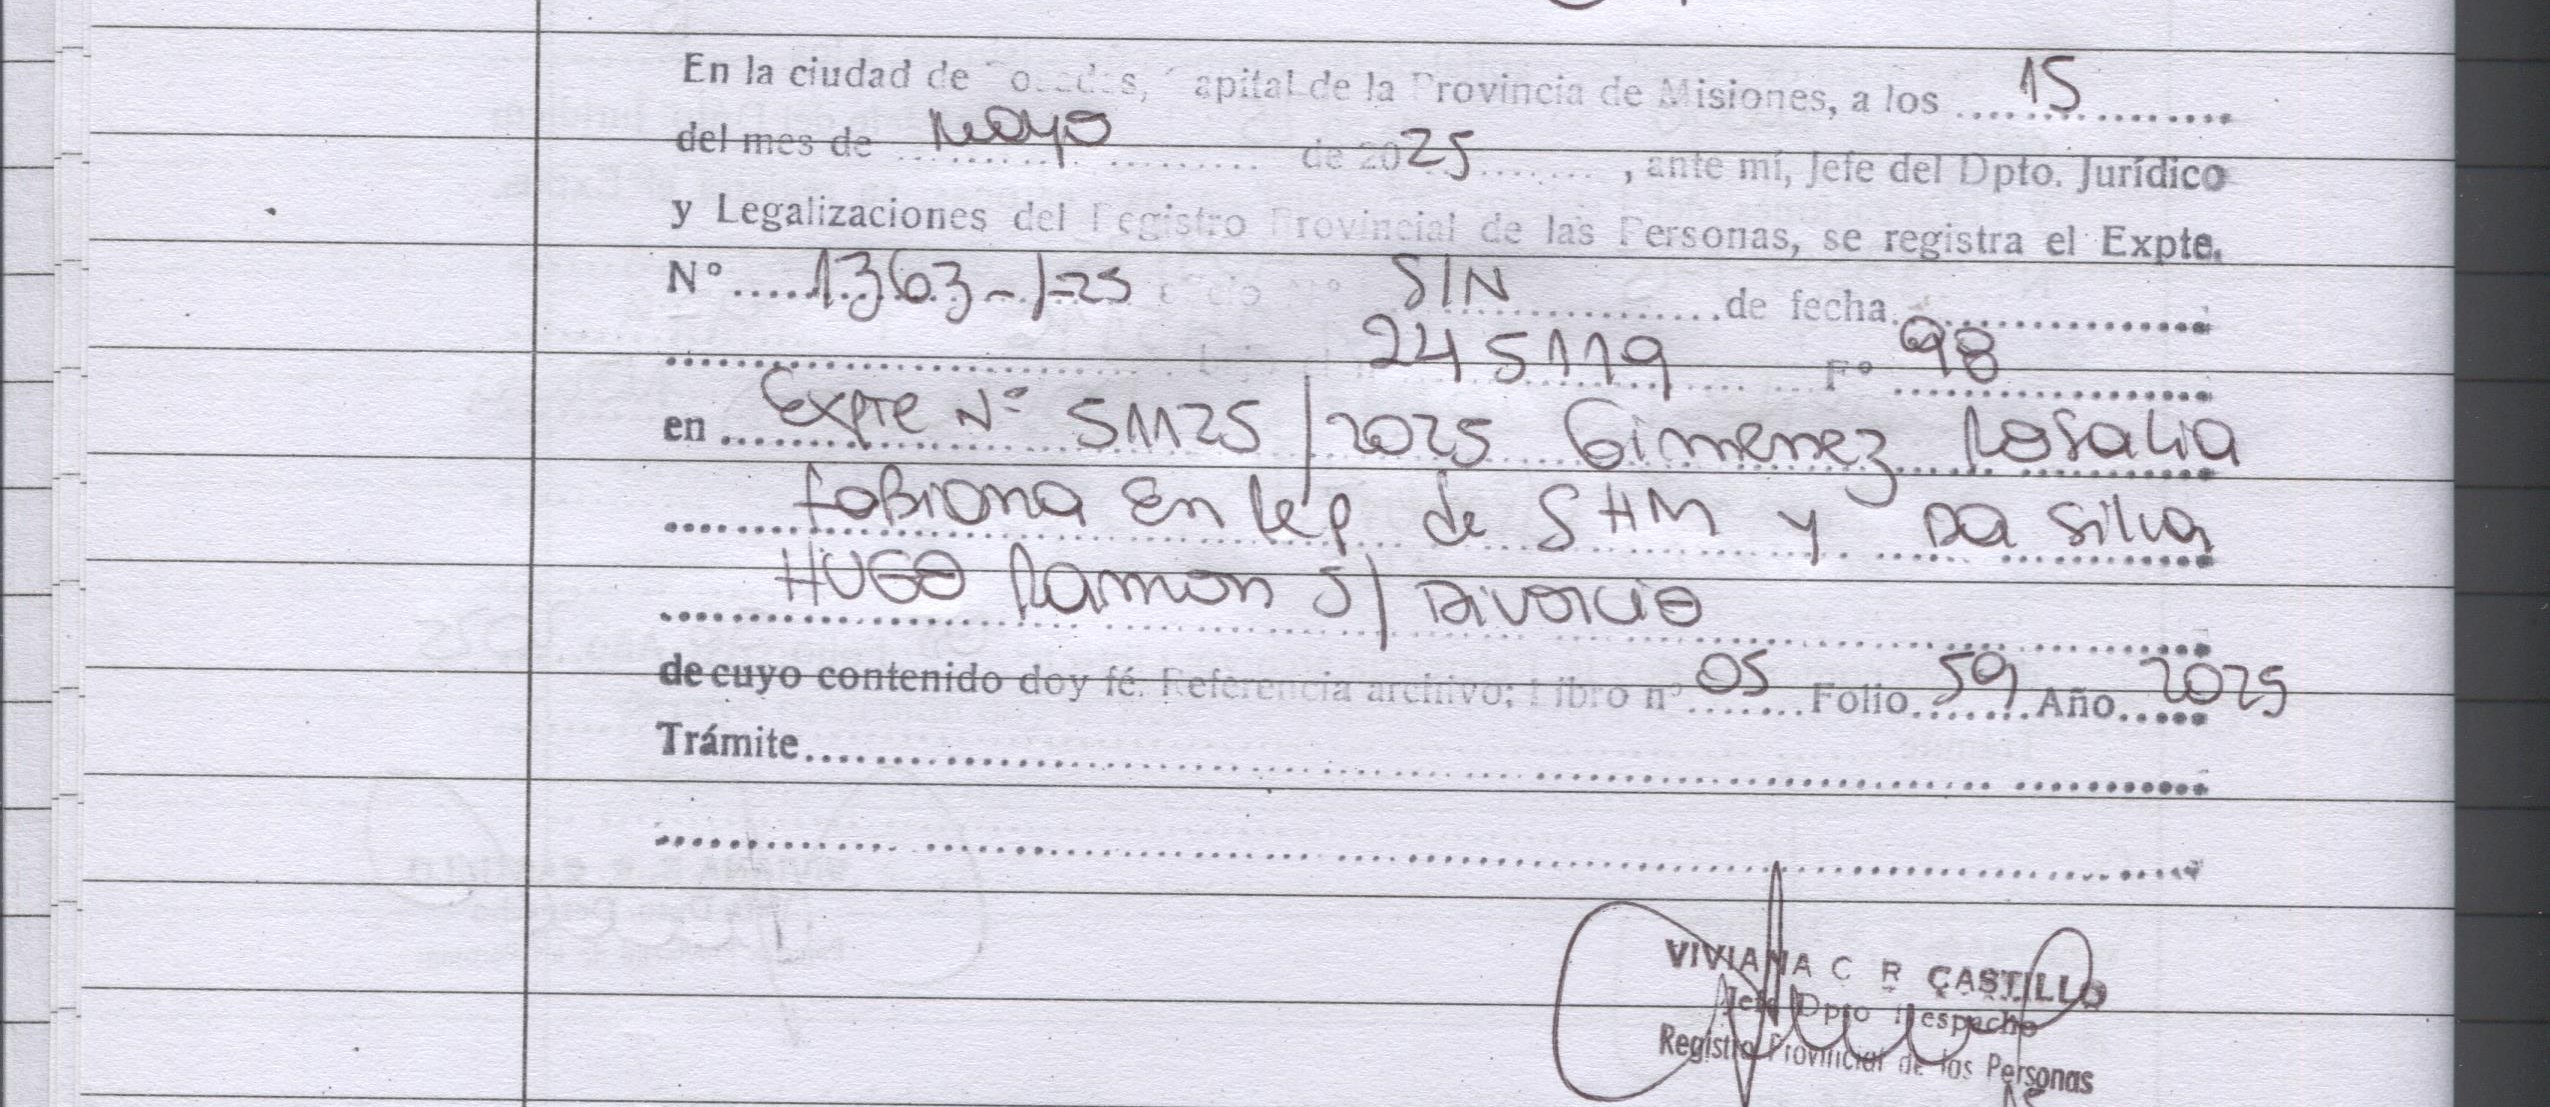 En la ciudad de Posadas, Capital de la Provincia de Misiones, a los 15
del mes de Mayo de 2025, ante mí, Jefe del Dpto. Jurídico
y Legalizaciones del Registro Provincial de las Personas, se registra el Expte.
N° 1363-1-25 Oficio N° S/N de fecha
245119 F° 98
en Expte N° 51125/2025 Gimenez Rosalia
Fabiana En Rep de SHM y Da Silva
HUGO Ramon S/ Divorcio
de cuyo contenido doy fé. Referencia archivo: Libro n° 05 Folio 59 Año 2025
Trámite
VIVIANA C R CASTILLO
Jefe Dpto Despacho
Registro Provincial de las Personas